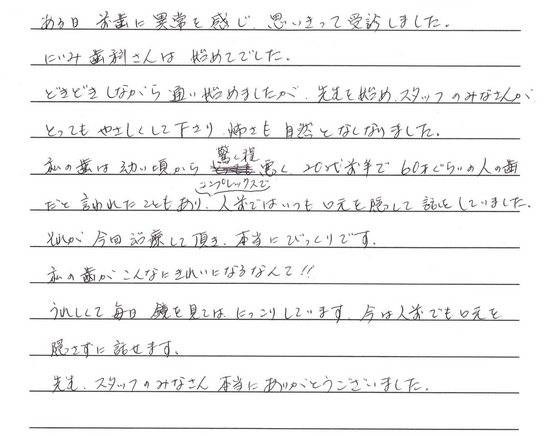 ある日 前歯に異常を感じ、思いきって受診しました。
にいみ歯科さんは 始めてでした。
どきどきしながら 通い始めましたが、先生を始め、スタッフのみなさんが
とってもやさしくして下さり 怖さも自然となくなりました。
私の歯は幼い頃から 驚く程 悪く 20代前半で 60才ぐらいの人の歯
だと言われたこともあり、コンプレックスで 人前ではいつも口元を隠して話をしていました。
それが 今回 治療して頂き、本当にびっくりです。
私の歯がこんなにきれいになるなんて!!
うれしくて毎日 鏡を見ては にっこりしています。今は人前でも口元を
隠さずに話せます。
先生、スタッフのみなさん 本当にありがとうございました。